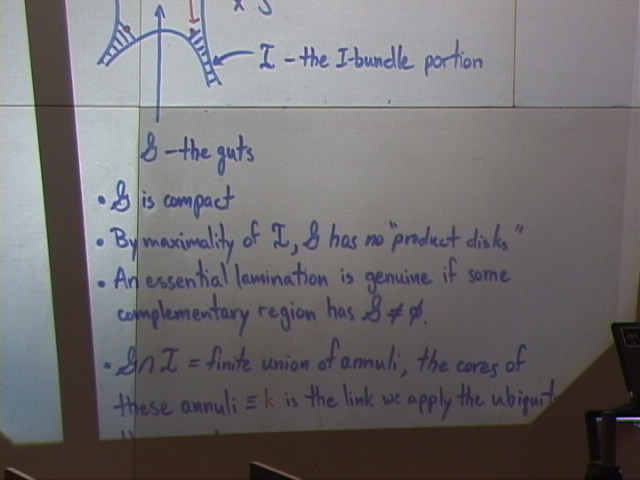 I - the I-bundle portion
G - the guts
• G is compact
• By maximality of I, G has no "product disks"
• An essential lamination is genuine if some
complementary region has G ≠ ∅.
• G ∩ I = finite union of annuli, the cores of
these annuli ≡ k is the link we apply the ubiquit